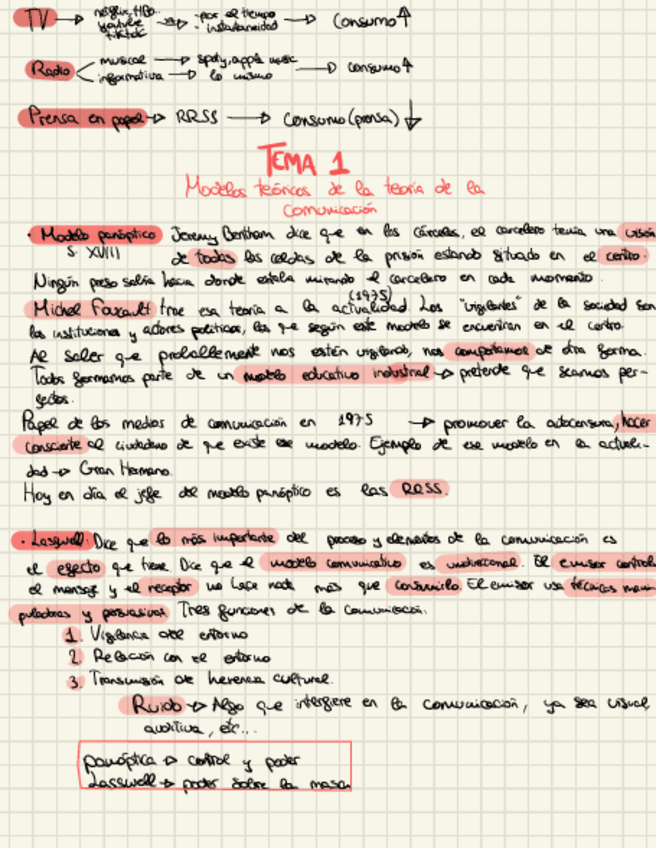 TV → netflix, HBO.. youtube tiktok → - por el tiempo - instantaneidad → Consumo ↑
Radio musical → spoty, apple music → consumo ↑
informativa → lo mismo
Prensa en papel → RRSS → Consumo (prensa) ↓
TEMA 1
Modelos teóricos de la teoría de la
comunicación
· Modelo panóptico Jeremy Bentham dice que en las cárceles, el carcelero tenía una visión
S. XVIII de todas las celdas de la prisión estando situado en el centro.
Ningún preso sabía hacia donde estaba mirando el carcelero en cada momento.
Michel Foucault trae esa teoría a la actualidad (1975) Los "vigilantes" de la sociedad son
las instituciones y actores políticos, los que según este modelo se encuentran en el centro.
Al saber que probablemente nos estén vigilando, nos comportamos de otra forma.
Todos formamos parte de un modelo educativo industrial → pretende que seamos per-
fectos.
Papel de los medios de comunicación en 1975 → promover la autocensura, hacer
consciente al ciudadano de que existe ese modelo. Ejemplo de ese modelo en la actuali-
dad → Gran Hermano.
Hoy en día el jefe del modelo panóptico es las RRSS.
· Lasswell: Dice que lo más importante del proceso y elementos de la comunicación es
el efecto que tiene. Dice que el modelo comunicativo es unidireccional. El emisor control
el mensaje y el receptor no hace nada más que consumirlo. El emisor usa técnicas mani
puladoras y persuasivas. Tres funciones de la comunicación.
1. Vigilancia del entorno
2. Relación con el entorno
3. Transmisión de herencia cultural.
Ruido → Algo que interfiere en la comunicación, ya sea visual,
auditiva, etc...
panóptica → control y poder
Lasswell → poder sobre la masa